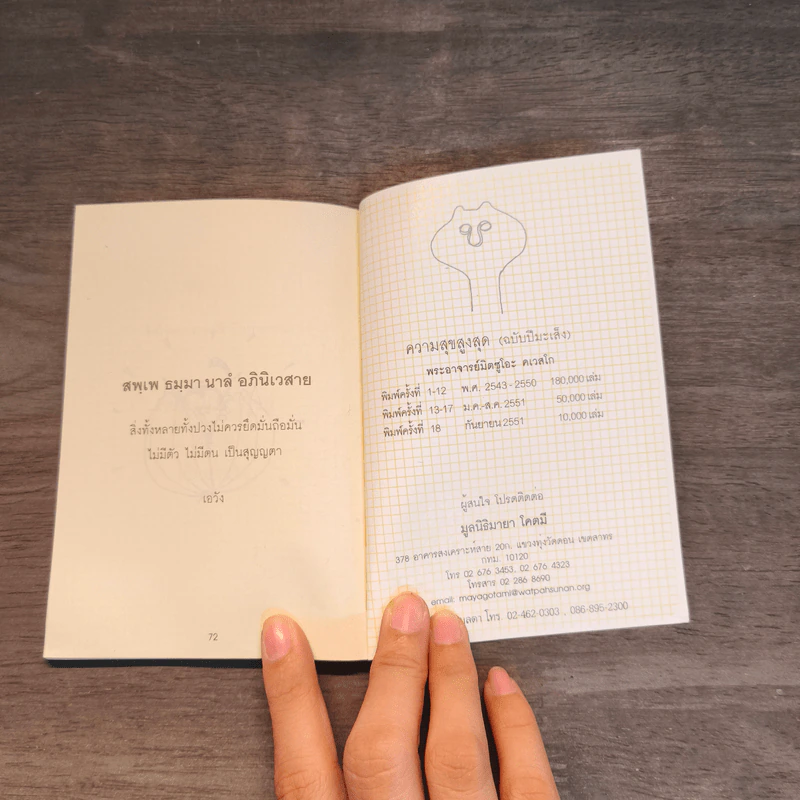 สพฺเพ ธมฺมา นาลํ อภินิเวสาย
สิ่งทั้งหลายทั้งปวงไม่ควรยึดมั่นถือมั่น
ไม่มีตัว ไม่มีตน เป็นสุญญตา
เอวัง
72
ความสุขสูงสุด (ฉบับปีมะเส็ง)
พระอาจารย์มิตซูโอะ คเวสโก
พิมพ์ครั้งที่ 1-12 พ.ศ. 2543-2550 180,000 เล่ม
พิมพ์ครั้งที่ 13-17 ม.ค.-ส.ค. 2551 50,000 เล่ม
พิมพ์ครั้งที่ 18 กันยายน 2551 10,000 เล่ม
ผู้สนใจ โปรดติดต่อ
มูลนิธิมายา โคตมี
378 อาคารสงเคราะห์สาย 20ถ. แขวงทุ่งวัดดอน เขตสาทร
กทม. 10120
โทร 02 676 3453, 02 676 4323
โทรสาร 02 286 8690
email: mayagotami@watpahsunan.org
โทร. 02-462-0303 , 086-895-2300